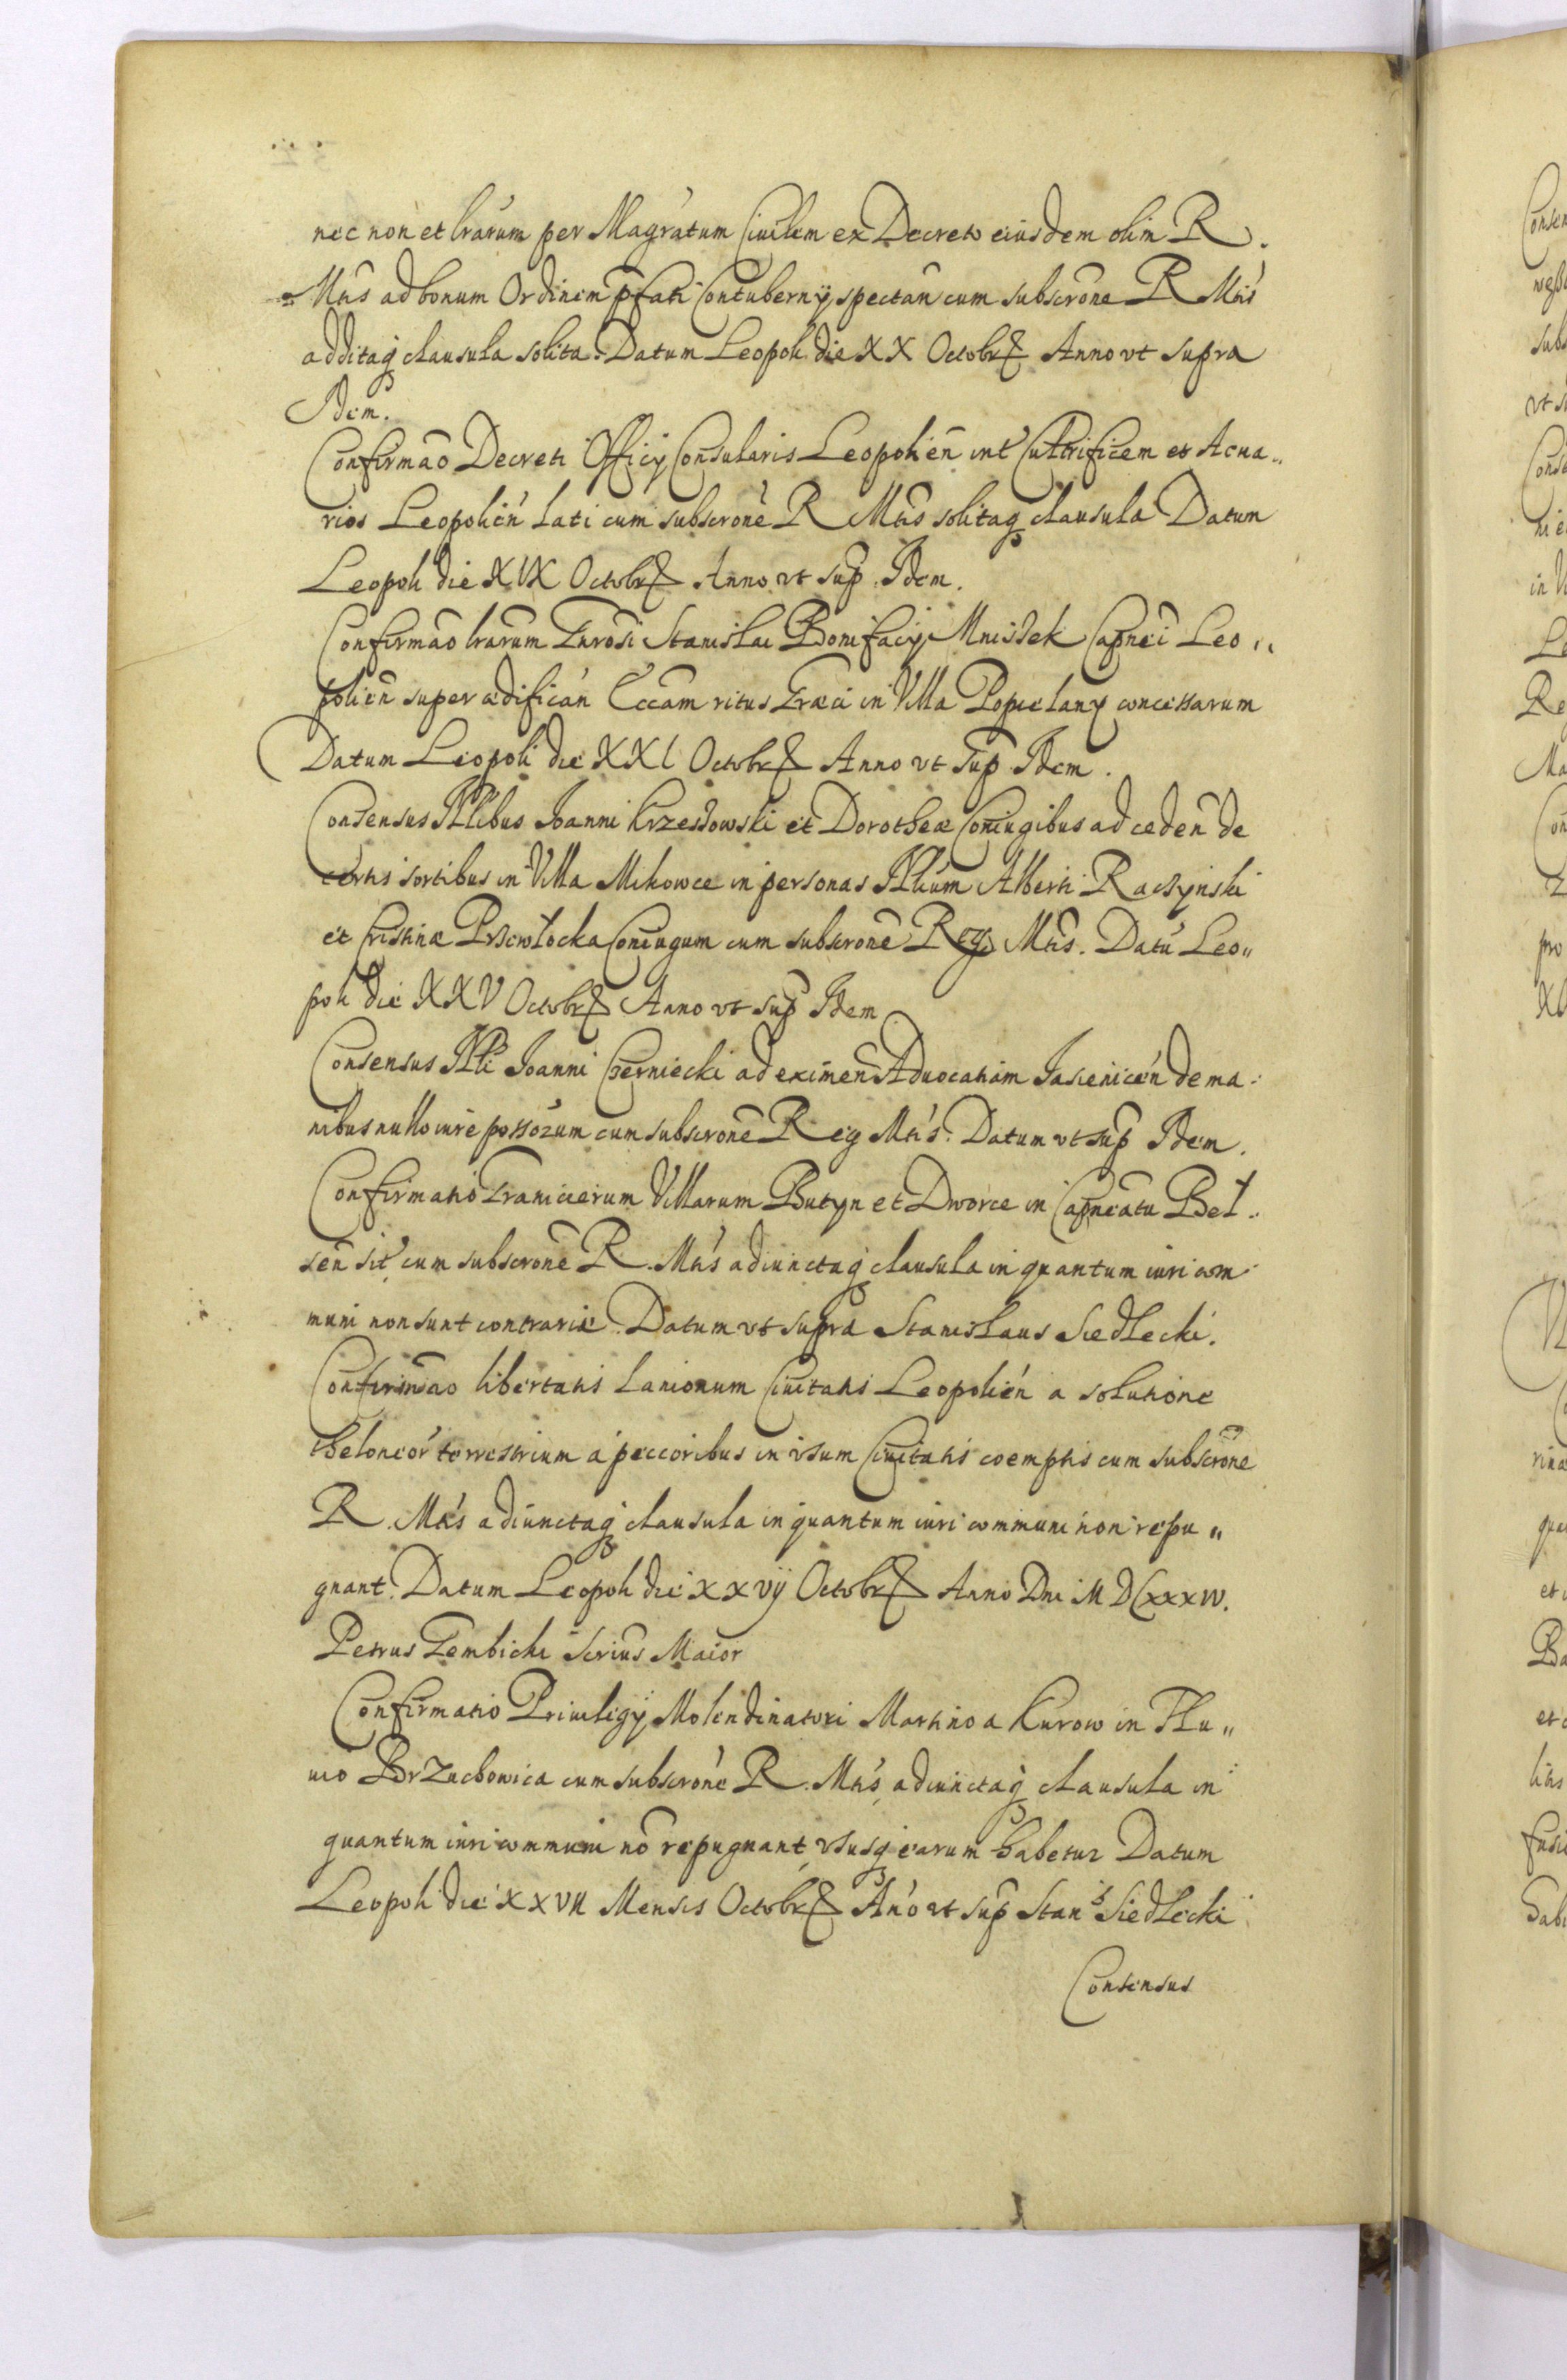 nec non et lrarum per Magratum Ciuilem ex Decreto eiusdem olim R.
Mtis ad bonum Ordinem pfati Contubernÿ spectan cum subscrone R Mtis
additaq clausula solita. Datum Leopoli die XX Octobr Anno vt supra
Idem.
Confirmao Decreti Officÿ Consularis Leopolien int Cultrificem et Acua„
rios Leopolien lati cum subscrone R Mtis solitaq clausula Datum
Leopoli die XIX Octobr Anno vt sup Idem.
Confirmao lrarum Gnrosi Stanislai Bonifacÿ Mnissek Capnei Leo„
polien super ædifican Eccam ritus Græci in Villa Popielany concessarum
Datum Leopoli die XXI Octobr Anno vt sup Idem.
Consensus Nlibus Joanni Krzessowski et Dorotheæ Coniugibus ad ceden de
certis sortibus in Villa Mikowce in personas Nlium Alberti Raczynski
et Cristinæ Przewłocka Coniugum cum subscrone Reg Mtis. Datu Leo„
poli die XXV Octobr Anno vt sup Idem
Consensus Nli Joanni Czerniecki ad eximen Aduocatiam Jasienicen de ma:
nibus nullo iure possorum cum subscrone Reg Mtis. Datum vt sup Idem.
Confirmatio Granicierum Villarum Butyn et Dworce in Capneatu Beł.
sen sit cum subscrone R. Mtis adiunctaq clausula in quantum iuri com
muni non sunt contrariæ. Datum vt supra Stanislaus Siedlecki.
Confirmao libertatis lanionum Ciuitatis Leopolien a solutione
theloneor terrestrium a peccoribus in vsum Ciuitatis coemptis cum subscrone
R. Mtis adiunctaq clausula in quantum iuri communi non repu„
gnant. Datum Leopoli die xxvÿ Octobr Anno Dni MDCxxxiv.
Petrus Gembicki Scrius Maior
Confirmatio Priuilegÿ Molendinatori Martino a Kurow in Flu„
uio Brzuchowica cum subscrone R. Mtis adiunctaq clausula in
quantum iuri communi no repugnant vsusq earum habetur Datum
Leopoli die XXVII Mensis Octobr Ano vt sup Stans Siedlecki
Consensus